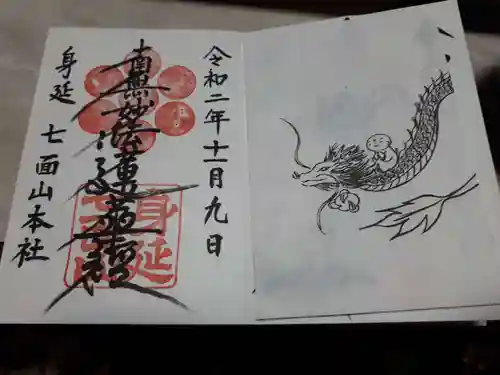 令和二年十一月九日
南無妙法蓮華経
身延
七面山本社
身延